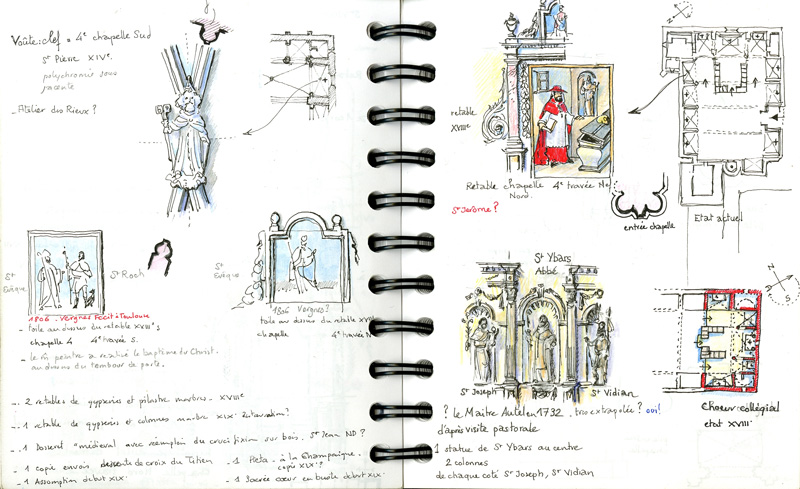 Voûte: clef = 4e chapelle Sud
St Pierre XIVe.
polychromie sous
jacente
- Atelier des Rieux?
St
Evêque
St Roch
St
Evêque
1806. Vergnes Fecit à Toulouse
- toile au dessus du retable XVIIIe s
chapelle 4 4e travée S.
- le m̂ peintre a réalisé le baptême du Christ.
au dessus du tambour de porte.
1806 Vergnes?
toile au dessus du retable XVIIIe
chapelle 4e travée N
-. 2 retables de gypseries et pilastre marbres. XVIIIe
-. 1 retable de gypseries et colonnes marbre XIXe Restauration?
-. 1 Dosseret "médiéval avec réemploi du crucifixion sur bois. St Jean ND?
-. 1 copie envois descente de croix du Titien
- 1 Assomption début XIXe
- 1 Pieta - à la Champaigne.
copie XIXe?
- 1 Sacrée coeur en buste début XIXe
retable
XVIIIe
Retable chapelle 4e travée Ne
Nord.
St Jérôme?
entrée chapelle
Etat actuel
N
St Ybars
Abbé
St Joseph
St Vidian
S
Choeur: collégial
etat XVIII
? le Maître Autel en 1732. trio extrapolée? oui!
d'après visite pastorale
1 statue de St Ybars au centre
2 colonnes
de chaque coté St Joseph, St Vidian